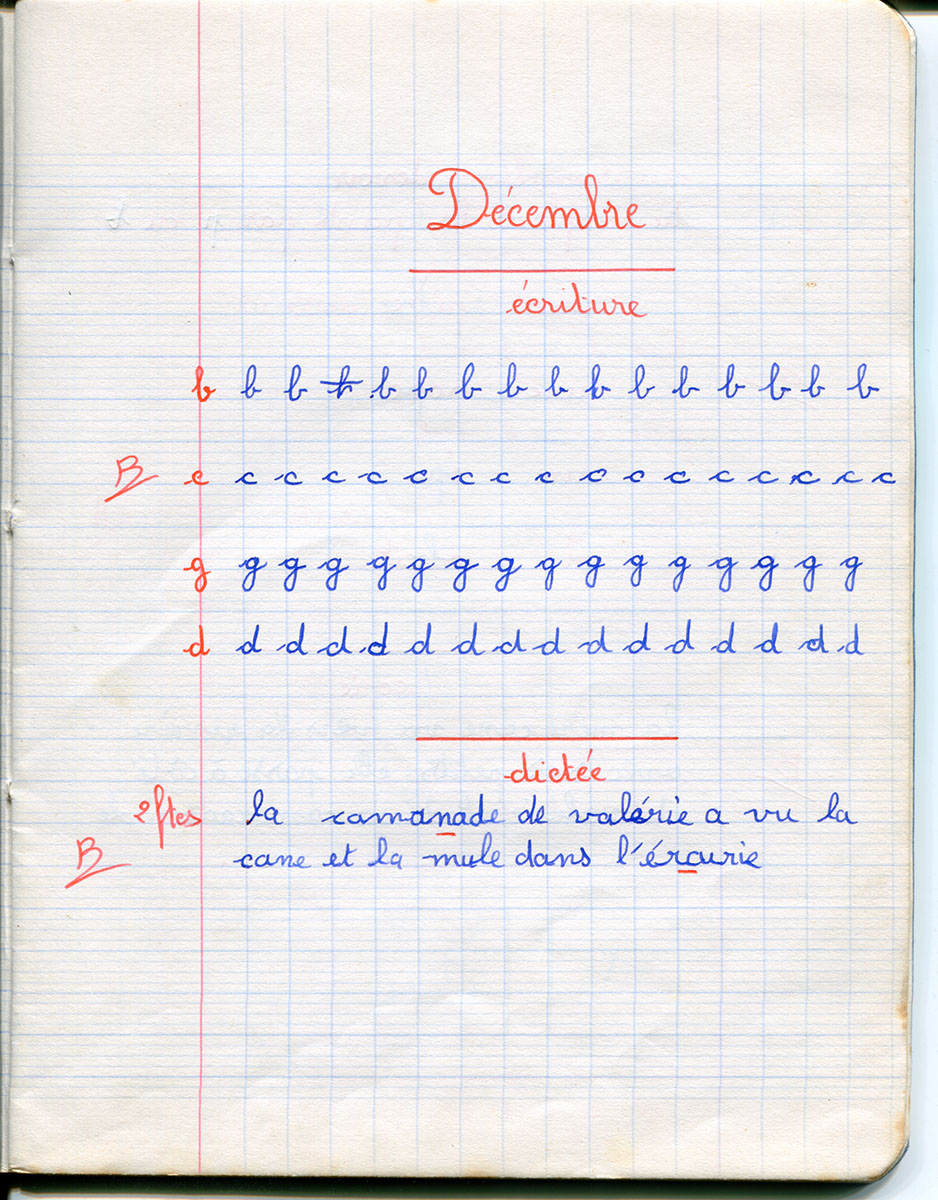 Décembre
écriture
b b b b b b b b b b b b b b b b
B c c c c c c c c c c c c c c c c c
g g g g g g g g g g g g g g g g
d d d d d d d d d d d d d d d d
dictée
2 ftes la camanade de valérie a vu la
B cane et la mule dans l'écaurie